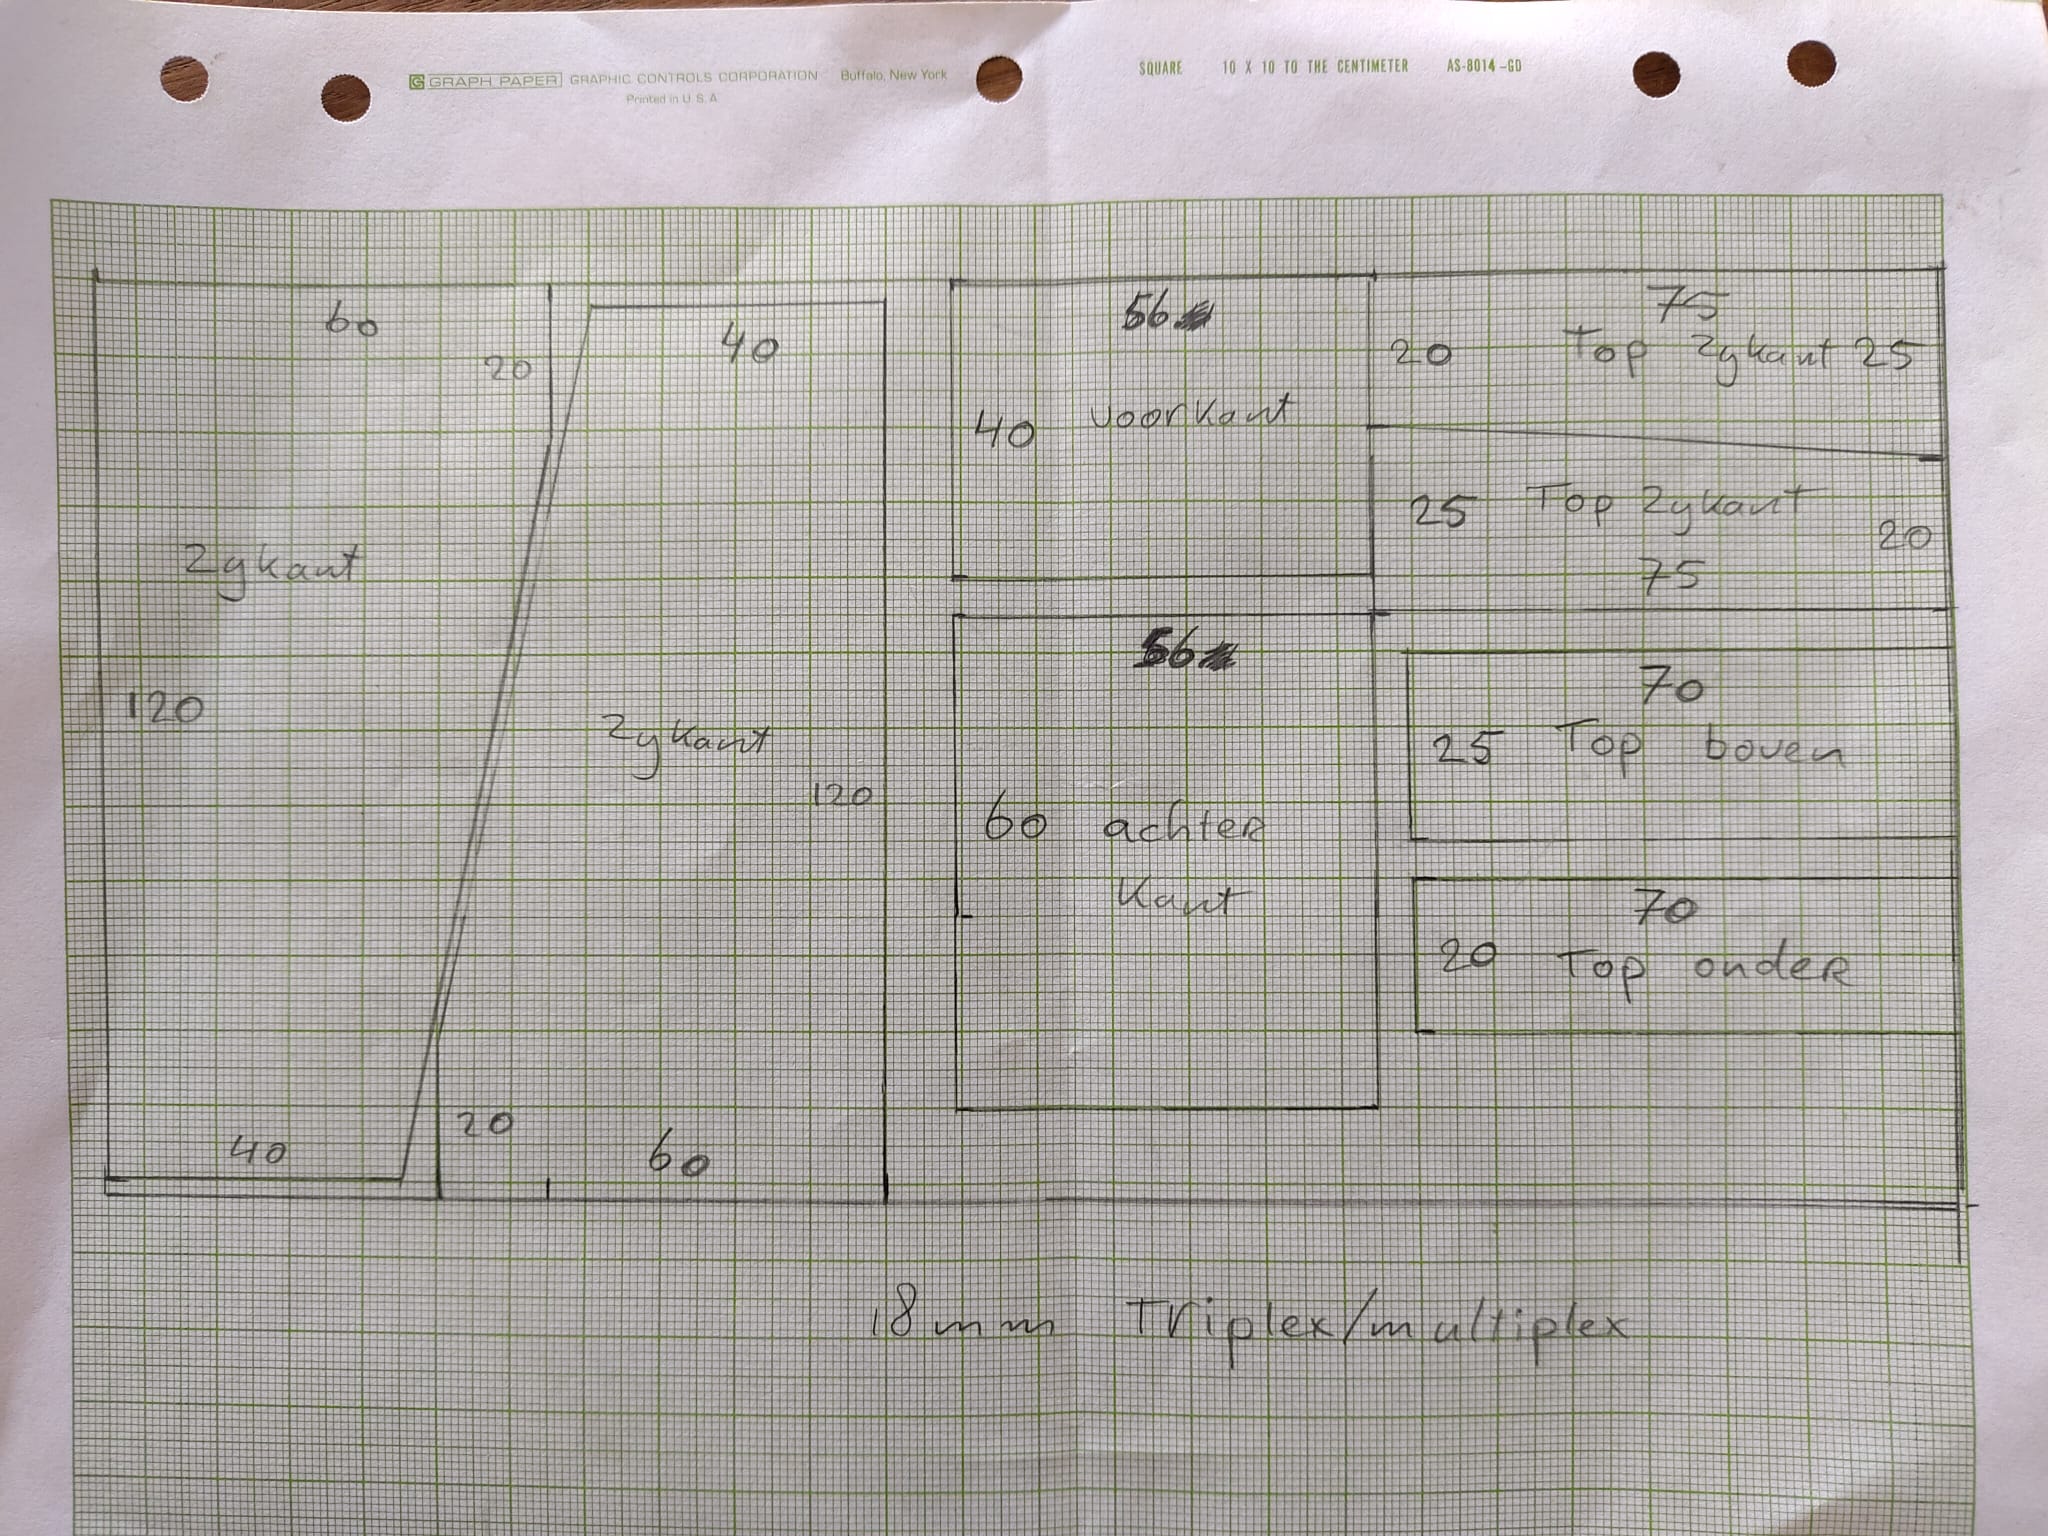 GRAPH PAPER GRAPHIC CONTROLS CORPORATION Buffalo, New York
Printed in U. S. A
SQUARE 10 X 10 TO THE CENTIMETER AS-8014-GD
60
20
Zykant
120
40
40
Zykant
120
20
60
56
40 voorkant
56
60 achter
kant
75
20 Top Zykant 25
25 Top Zykant 20
75
70
25 Top boven
70
20 Top onder
18mm Triplex/multiplex